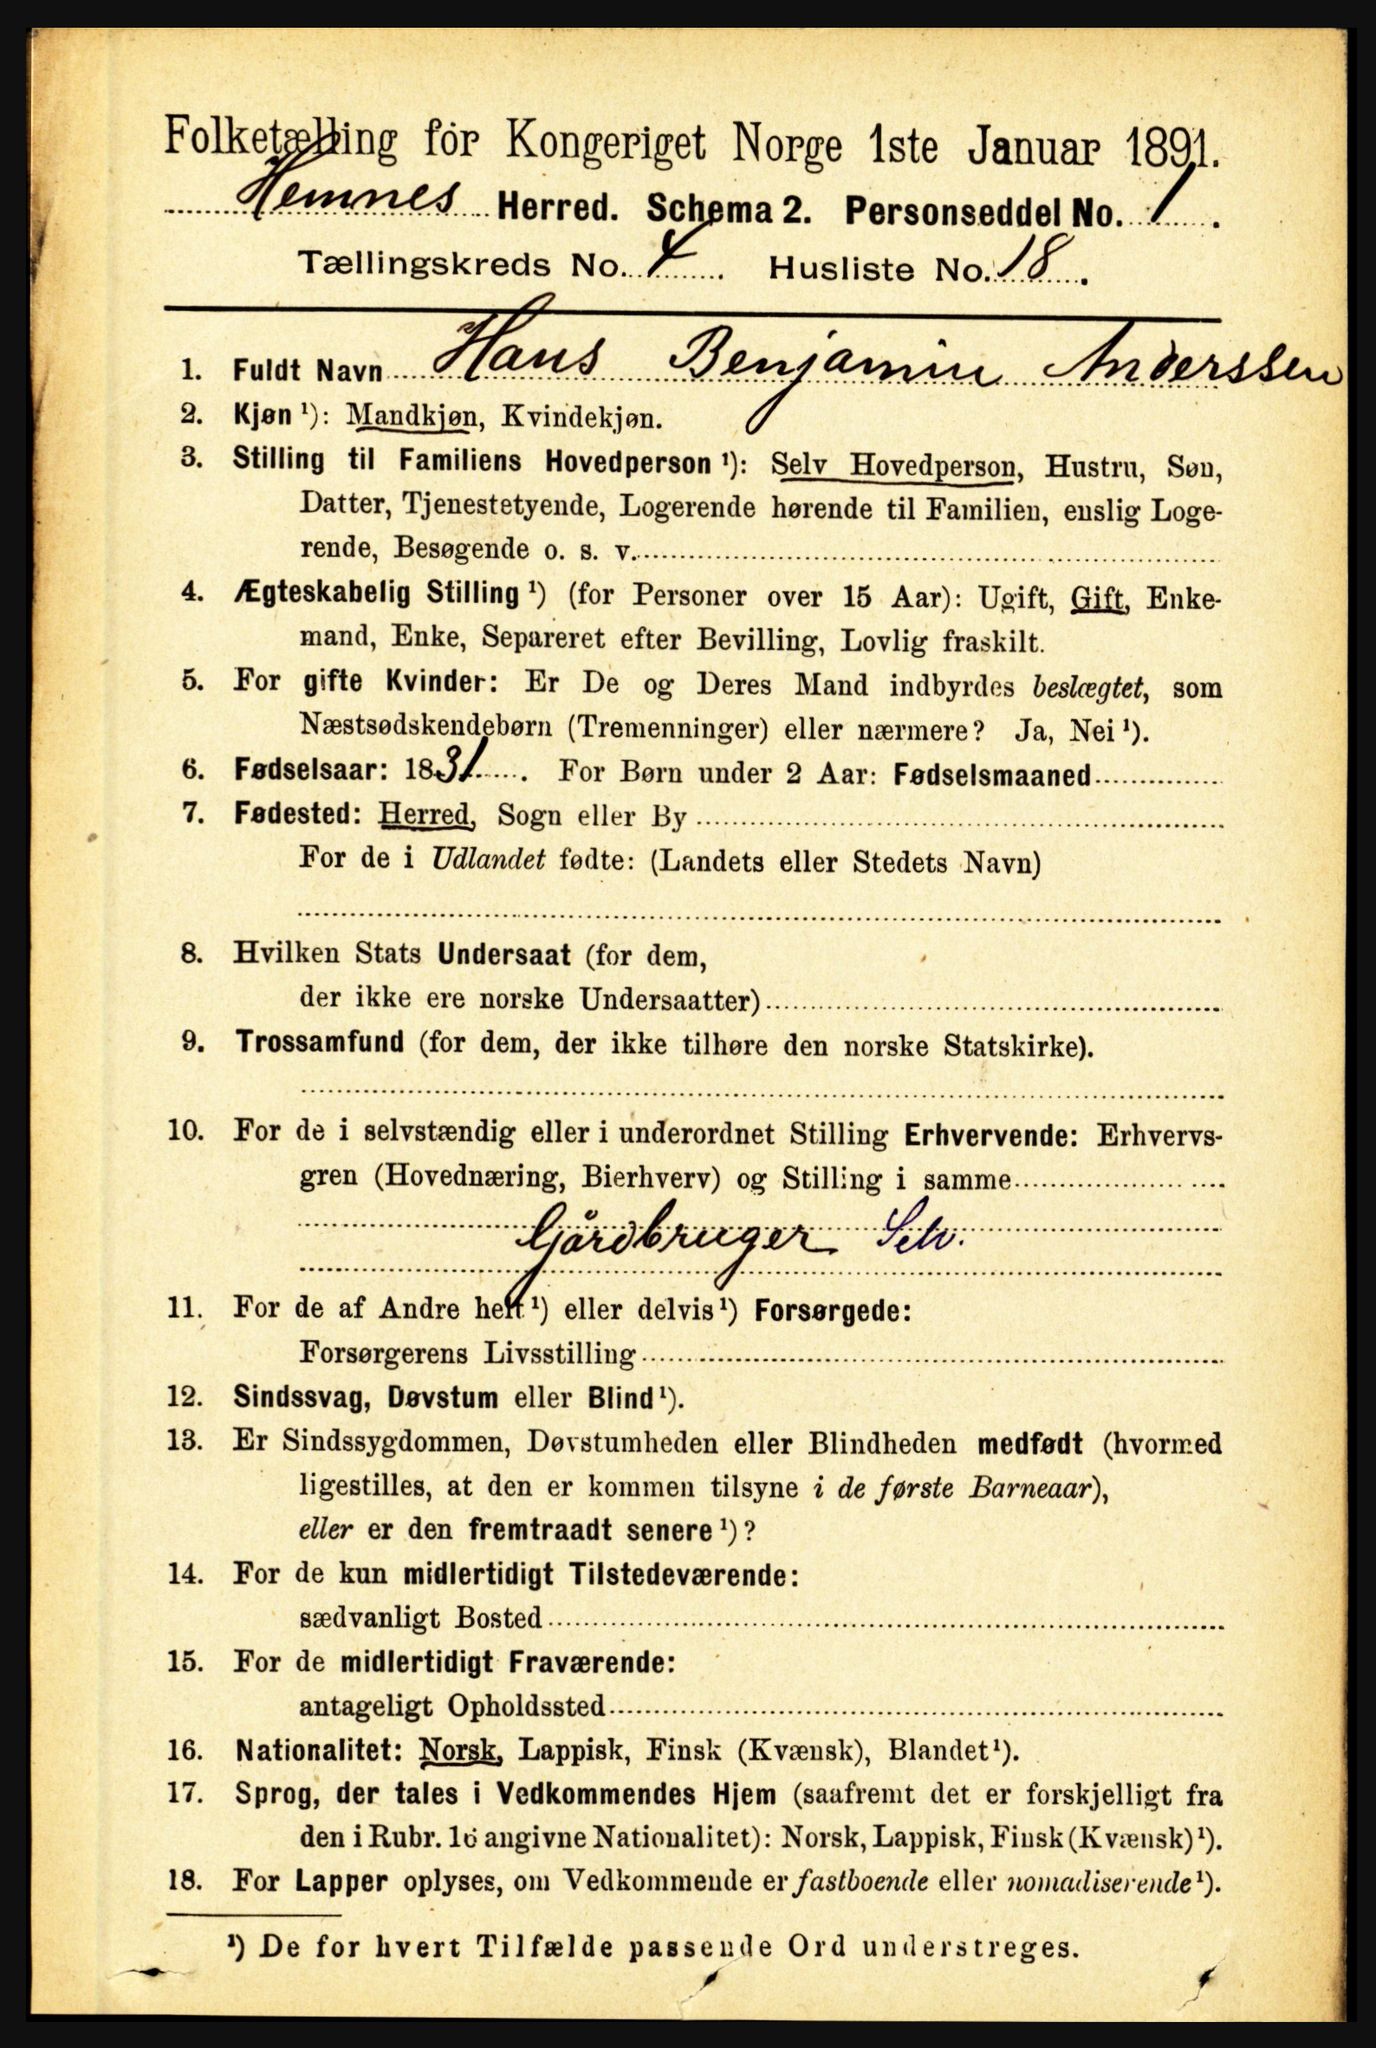 Folketælling for Kongeriget Norge 1ste Januar 1891.
Hemnes Herred. Schema 2. Personseddel No. 1.
Tællingskreds No. 4 Husliste No. 18.
1. Fuldt Navn Hans Benjamin Anderssen
2. Kjøn ¹): Mandkjøn, Kvindekjøn.
3. Stilling til Familiens Hovedperson ¹): Selv Hovedperson, Hustru, Søn,
Datter, Tjenestetyende, Logerende hørende til Familien, enslig Loge-
rende, Besøgende o. s. v.
4. Ægteskabelig Stilling ¹) (for Personer over 15 Aar): Ugift, Gift, Enke-
mand, Enke, Separeret efter Bevilling, Lovlig fraskilt.
5. For gifte Kvinder: Er De og Deres Mand indbyrdes beslægtet, som
Næstsødskendebørn (Tremenninger) eller nærmere? Ja, Nei ¹).
6. Fødselsaar: 1831. For Børn under 2 Aar: Fødselsmaaned
7. Fødested: Herred, Sogn eller By
For de i Udlandet fødte: (Landets eller Stedets Navn)
8. Hvilken Stats Undersaat (for dem,
der ikke ere norske Undersaatter)
9. Trossamfund (for dem, der ikke tilhøre den norske Statskirke).
10. For de i selvstændig eller i underordnet Stilling Erhvervende: Erhvervs-
gren (Hovednæring, Bierhverv) og Stilling i samme
Gårdbruger Selv.
11. For de af Andre helt ¹) eller delvis ¹) Forsørgede:
Forsørgerens Livsstilling
12. Sindssvag, Døvstum eller Blind ¹).
13. Er Sindssygdommen, Døvstumheden eller Blindheden medfødt (hvormed
ligestilles, at den er kommen tilsyne i de første Barneaar),
eller er den fremtraadt senere ¹)?
14. For de kun midlertidigt Tilstedeværende:
sædvanligt Bosted
15. For de midlertidigt Fraværende:
antageligt Opholdssted
16. Nationalitet: Norsk, Lappisk, Finsk (Kvænsk), Blandet ¹).
17. Sprog, der tales i Vedkommendes Hjem (saafremt det er forskjelligt fra
den i Rubr. 16 angivne Nationalitet): Norsk, Lappisk, Finsk (Kvænsk) ¹).
18. For Lapper oplyses, om Vedkommende er fastboende eller nomadiserende ¹).
¹) De for hvert Tilfælde passende Ord understreges.